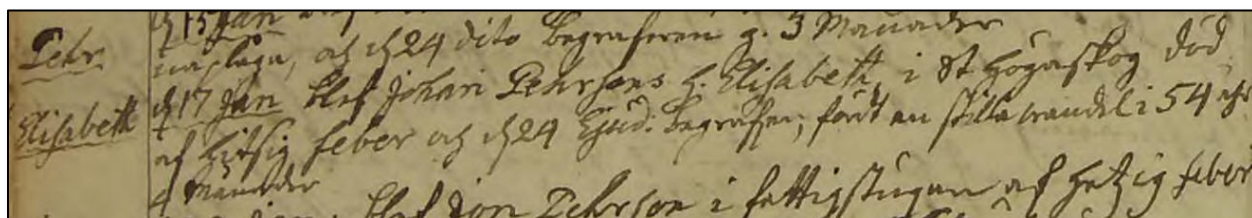 d 15 Jan
Pehr
, och d 24 dito begrafven g. 3 Månader
Elisabeth
d 17 Jan blef Johan Pehrsons h. Elisabeth i St Högaskog död
af hitsig feber och d 24 Ejusd. begrafven, fördt en stilla vandel i 54 åhr
4 Månader
blef Jon Pehrson i fattigstugan af hetzig feber